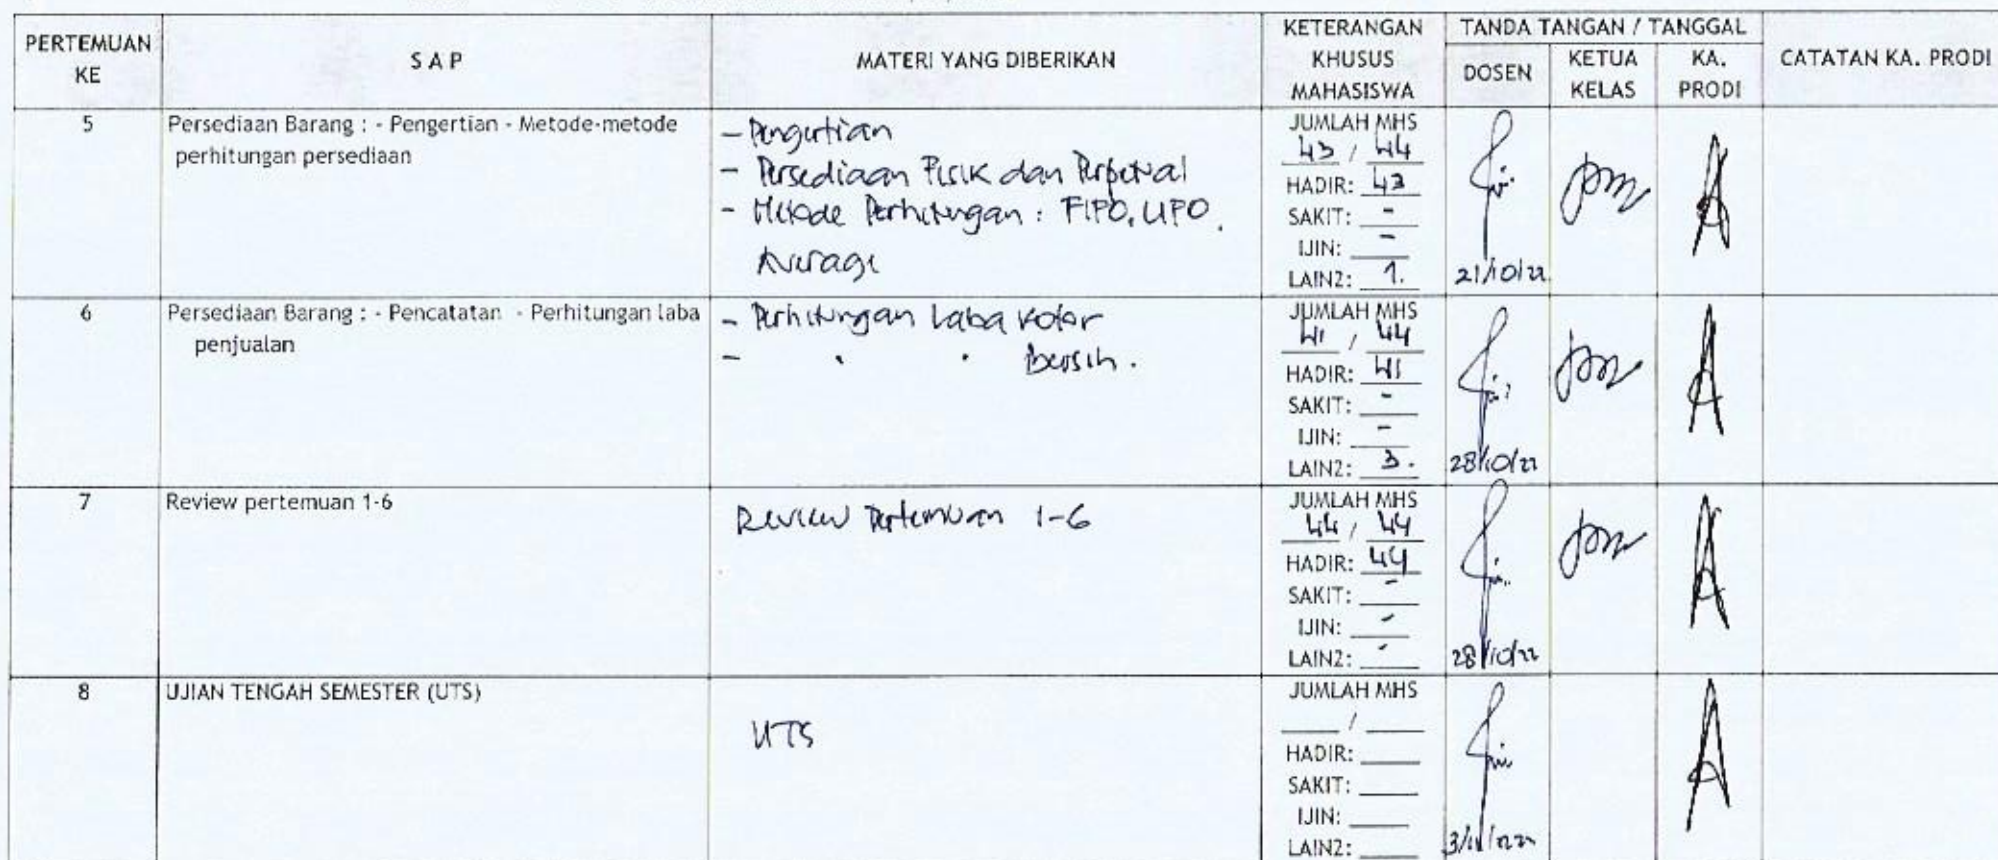 PERTEMUAN KE
S A P
MATERI YANG DIBERIKAN
KETERANGAN KHUSUS MAHASISWA
TANDA TANGAN / TANGGAL
DOSEN
KETUA KELAS
KA. PRODI
CATATAN KA. PRODI
5
Persediaan Barang : - Pengertian - Metode-metode
perhitungan persediaan
- Pengertian
- Persediaan Fisik dan Perpetual
- Metode Perhitungan : FIFO, LIFO,
Average
JUMLAH MHS
43 / 44
HADIR: 43
SAKIT: -
IJIN: -
LAIN2: 1.
21/10/22
6
Persediaan Barang : - Pencatatan - Perhitungan laba
penjualan
- Perhitungan Laba Kotor
- " " Bersih.
JUMLAH MHS
41 / 44
HADIR: 41
SAKIT: -
IJIN: -
LAIN2: 3.
28/10/22
7
Review pertemuan 1-6
Review Pertemuan 1-6
JUMLAH MHS
44 / 44
HADIR: 44
SAKIT: -
IJIN: -
LAIN2: -
28/10/22
8
UJIAN TENGAH SEMESTER (UTS)
UTS
JUMLAH MHS
/
HADIR:
SAKIT:
IJIN:
LAIN2: